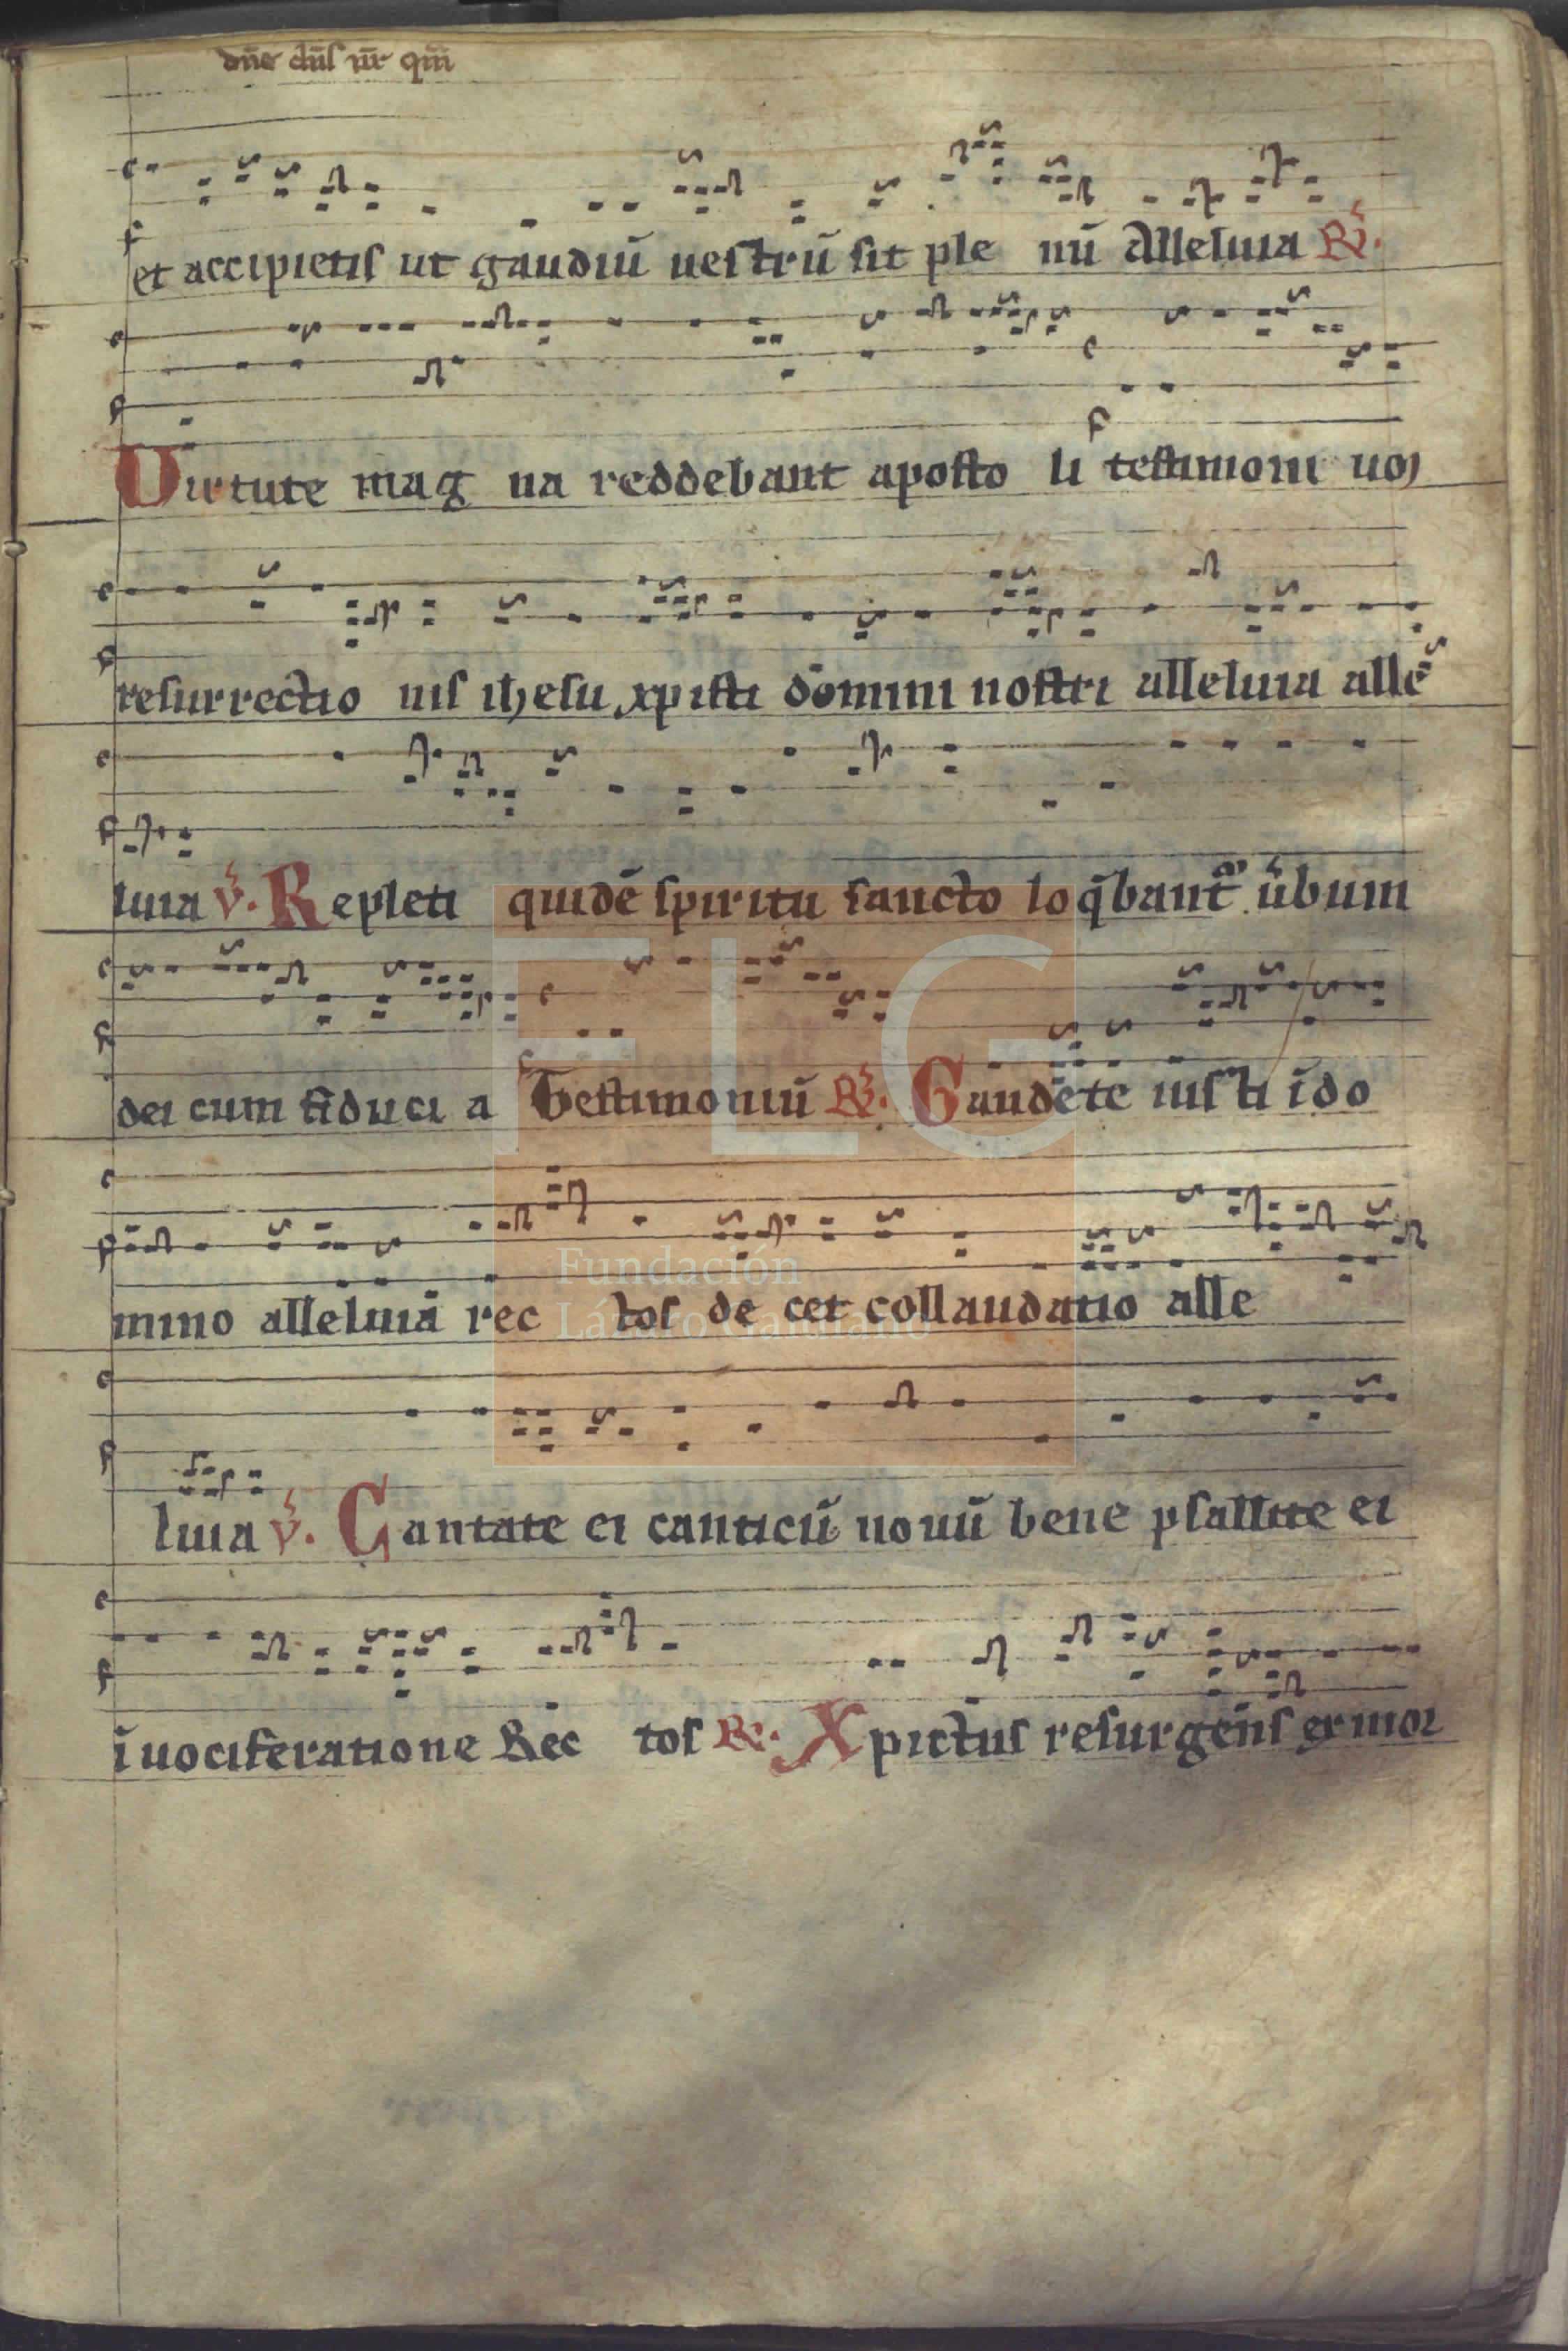 dn̄e du̅s nr̄ qm̄
et accipietis ut gaudiū uestrū sit ple nū Alleluia R̃.
Uirtute mag na reddebant aposto li testimoni
resurrectio nis ihesu xpisti domini nostri alleluia allē
luia v̄. Repleti quidē spiritu sancto loq̄bant᷑ ūbum
dei cum fiduci a Testimoniū R̃. Gaudete iusti ī do
mino alleluia rec tos de cet collaudatio alle
luia v̄. Cantate ei canticū nouū bene psallite ei
ī uociferatione Rec tos R̃. Xpictus resurgens ex mor
FLG
Fundación
Lázaro Galdiano